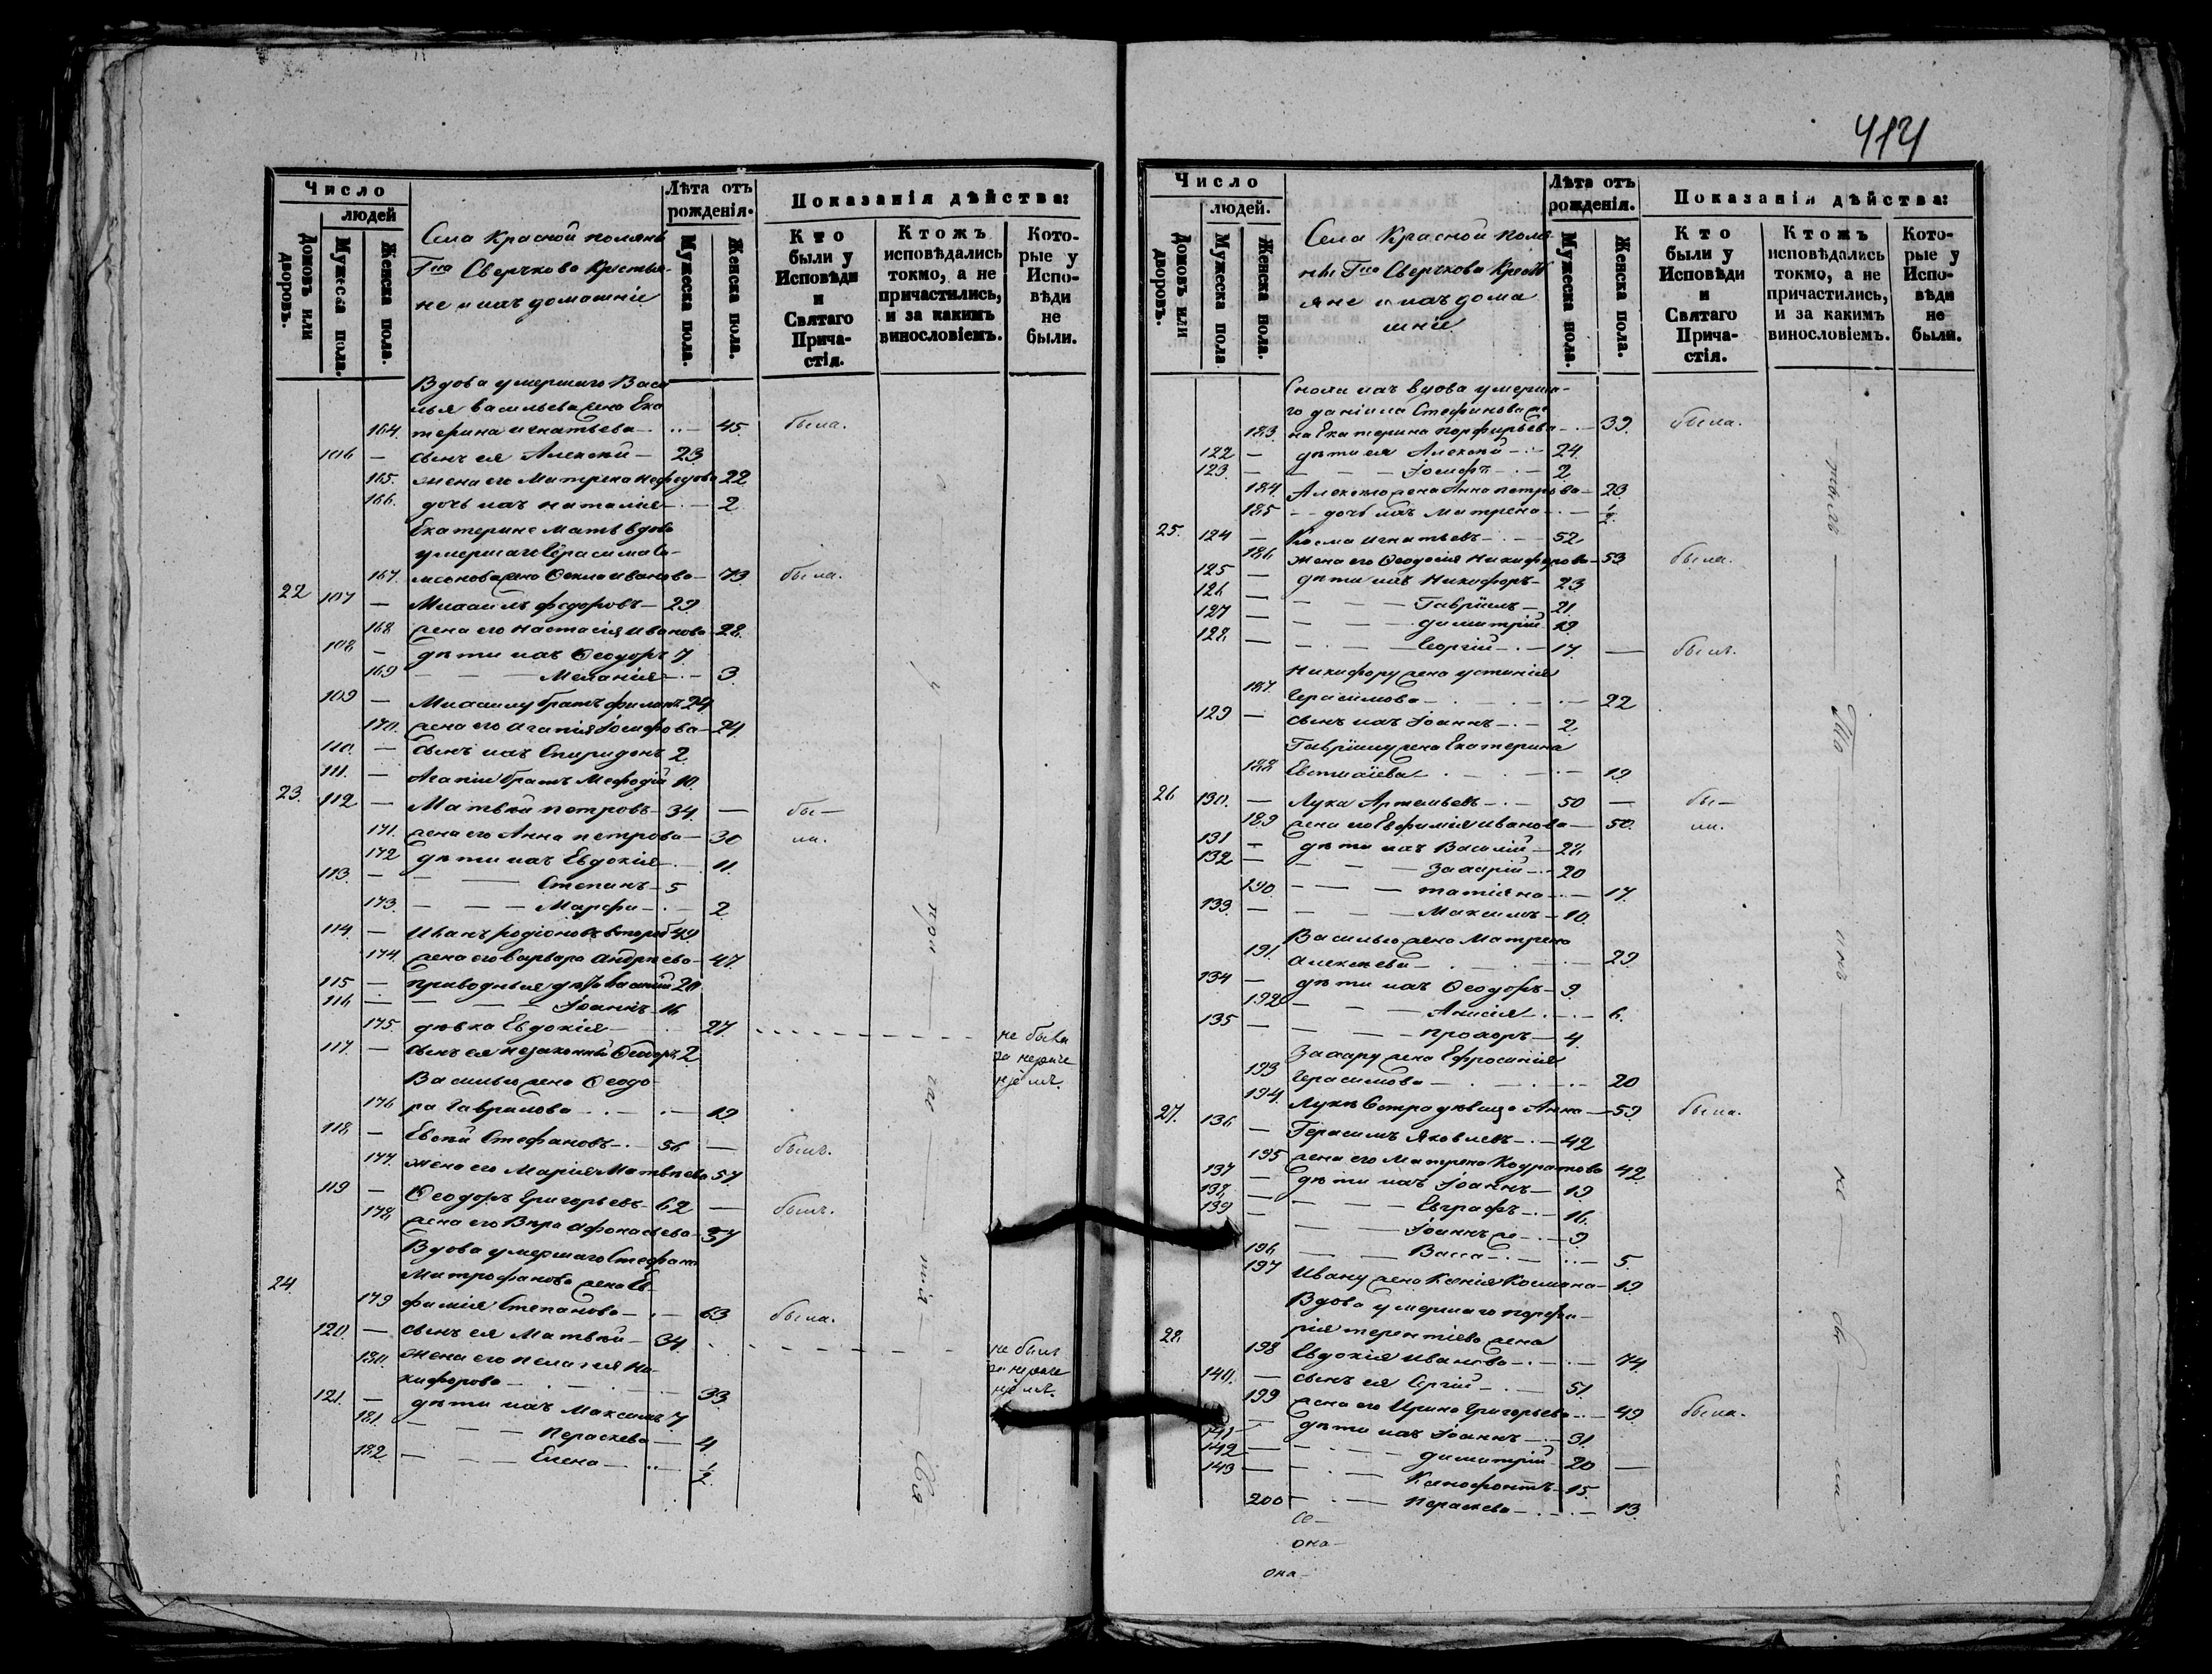 414
Число
людей
Домовъ или дворовъ.
Мужеска пола.
Женска пола.
Села Красной поляны
Гна Сверчкова Крестья-
не и ихъ домашніе
Лѣта отъ рожденія.
Мужеска пола.
Женска пола.
Показанія дѣйства:
Кто были у Исповѣди и Святаго Прича-стія.
Ктожъ исповѣдались токмо, а не причастились, и за какимъ винословіемъ.
Кото-рые у Испо-вѣди не были.
Вдова умершаго Васи
лья Васильева жена Ека
164. терина Игнатьева 45. была.
106 — сынъ ея Алексѣй — 23
165. жена его Матрена Нефедова 22
166. дочь ихъ Наталія — 2
Екатерине мать вдова
умершаго Герасима
167. жена Фекла Иванова — 73 была.
22 107 — Михаилъ Федоровъ — 29
168 жена его Настасія Иванова 28.
108 — дѣти ихъ Ѳеодоръ 7
169 — — — Меланія — 3
109 — Михаилу братъ Филипъ 24
170. жена его Агапія Іосифова — 24
110. — сынъ ихъ Спиридонъ 2
111. — Агапіи братъ Мефодій 10.
23. 112 — Матвѣй Петровъ — 34 — бы—
171. жена его Анна Петрова — 30 ли.
172 дѣти ихъ Евдокія — 11.
113. — — Степанъ — 5
173. — — — Марфа — 2
114. — Иванъ Родіоновъ второб. 49
174. жена его Варвара Андреева — 47.
115 — приводныя дѣти Василій 20
116 — — — Іоаннъ — 16
175. дѣвка Евдокія — 27 не была
117. — сынъ ея незаконный Ѳеодоръ 2
Василью жена Ѳеодо
176 ра Гаврилова — 19
118. — Евсѣй Стефановъ — 56 — былъ.
177. жена его Марія Матвѣева 57
119 — Ѳеодоръ Григорьевъ — 62 — былъ.
178. жена его Вѣра Афонасьева — 57
Вдова умершаго Стефана
Митрофанова жена Ев-
24. 179 фимія Степанова — 63 была.
120. — сынъ ея Матвѣй — 34 не былъ
180. жена его Пелагея Ни-
кифорова — 33
121. — дѣти ихъ Максимъ 7
181. — — — Параскева — 4
182 — — Елена — 1/2
у
при
час
тія
Свя
Число
людей.
Домовъ или дворовъ.
Мужеска пола
Женска пола.
Села Красной поля-
ны Гна Сверчкова Крест
яне и ихъ дома
шніе
Лѣта отъ рожденія.
Мужеска пола.
Женска пола.
Показанія дѣйства:
Кто были у Исповѣди и Святаго Прича-стія.
Ктожъ исповѣдались токмо, а не причастились, и за какимъ винословіемъ.
Кото-рые у Испо-вѣди не были.
Сноха ихъ вдова умерша-
го Даніила Стефанова же
183. на Екатерина Порфирьева — 39 была.
122 — дѣти ея Алексѣй — 24
123. — — — Іосифъ — 2
184. Алексѣю жена Анна Петрова — 23
185 — — дочь ихъ Матрена — 1/2
25. 124 — Косма Игнатьевъ — 52
186 жена его Ѳеодосія Никифорова — 53 была.
125 — дѣти ихъ Никифоръ — 23
126 — — — Гавріилъ — 21
127 — — — Димитрій 19
128. — — — Георгій — 17 — былъ.
Никифору жена Устинія
187. Герасимова — 22
129 — сынъ ихъ Іоаннъ — 2
Гавріилу жена Екатерина
188 Евстифіева — 19
26 130. — Лука Артемьевъ — 50 — бы—
189 жена его Ефимія Иванова — 50. ли.
131 — дѣти ихъ Василій — 28
132 — — — Захарій — 20
190 — — — Татіяна — 17.
133. — — — Максимъ — 10.
Василью жена Матрена
191. Алексѣева — 29
134 — дѣти ихъ Ѳеодоръ — 9
192 — — Анисія — 6.
135 — — — Прохоръ — 4
Захару жена Ефросинія
193 Герасимова — 20
194. Луки сестра дѣвица Анна — 59 была.
27. 136 — Герасимъ Яковлевъ — 42
195 жена его Матрена Кодратова 42
137 — дѣти ихъ Іоаннъ — 19
138. — — — Евграфъ — 16.
139 — — — Іоаннъ же — 9
196 — — Васса — 5.
197 Ивану жена Ксенія Космина — 19
Вдова умершаго Порфи-
рія Терентіева жена
28. 198 Евдокія Иванова — 74
140. — сынъ ея Сергій — 51.
199 жена его Ирина Григорьева — 49 была.
141 — дѣти ихъ Іоаннъ — 31
142 — — — Димитрій 20 —
143 — — — Ксенофонтъ 15
200 — — Параскева — 13.
не
ли
се—
она—
она—